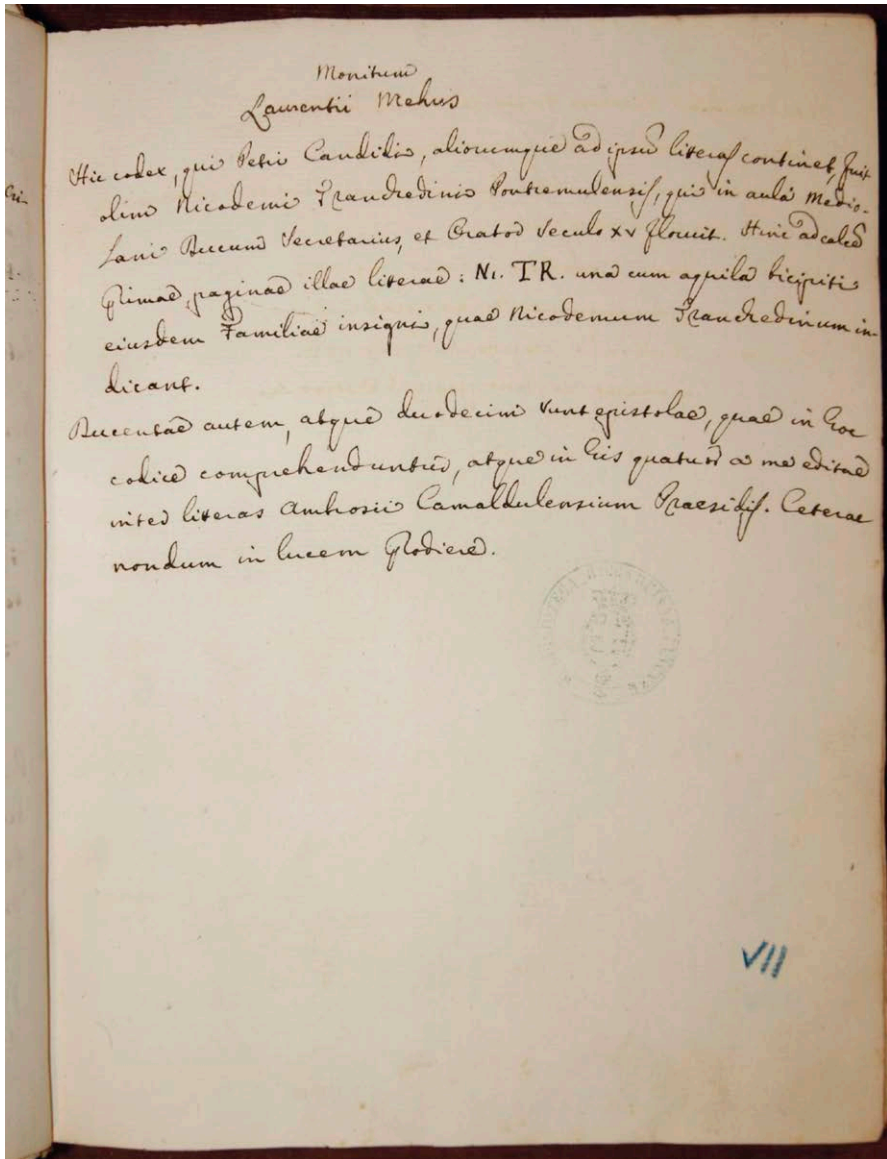 Monitum
Laurentii Mehus
Hic codex, qui Petri Candidi, aliorumque ad ipsū literas continet, fuit
olim Nicodemi Trancredini Pontremulensis, qui in aula Medio-
lani Ducum Secretarius, et Orator Seculo XV floruit. Hinc ad calcē
primae paginae illae literae: NI. TR. una cum aquila bicipiti
eiusdem Familiae insigni, quae Nicodemum Trancredinum in-
dicant.
Ducentae autem, atque duodecim sunt epistolae, quae in hoc
codice comprehenduntur, atque in his quatuor a me editae
inter literas Ambrosii Camaldulensium Praesidis. Ceterae
nondum in lucem prodiere.
VII